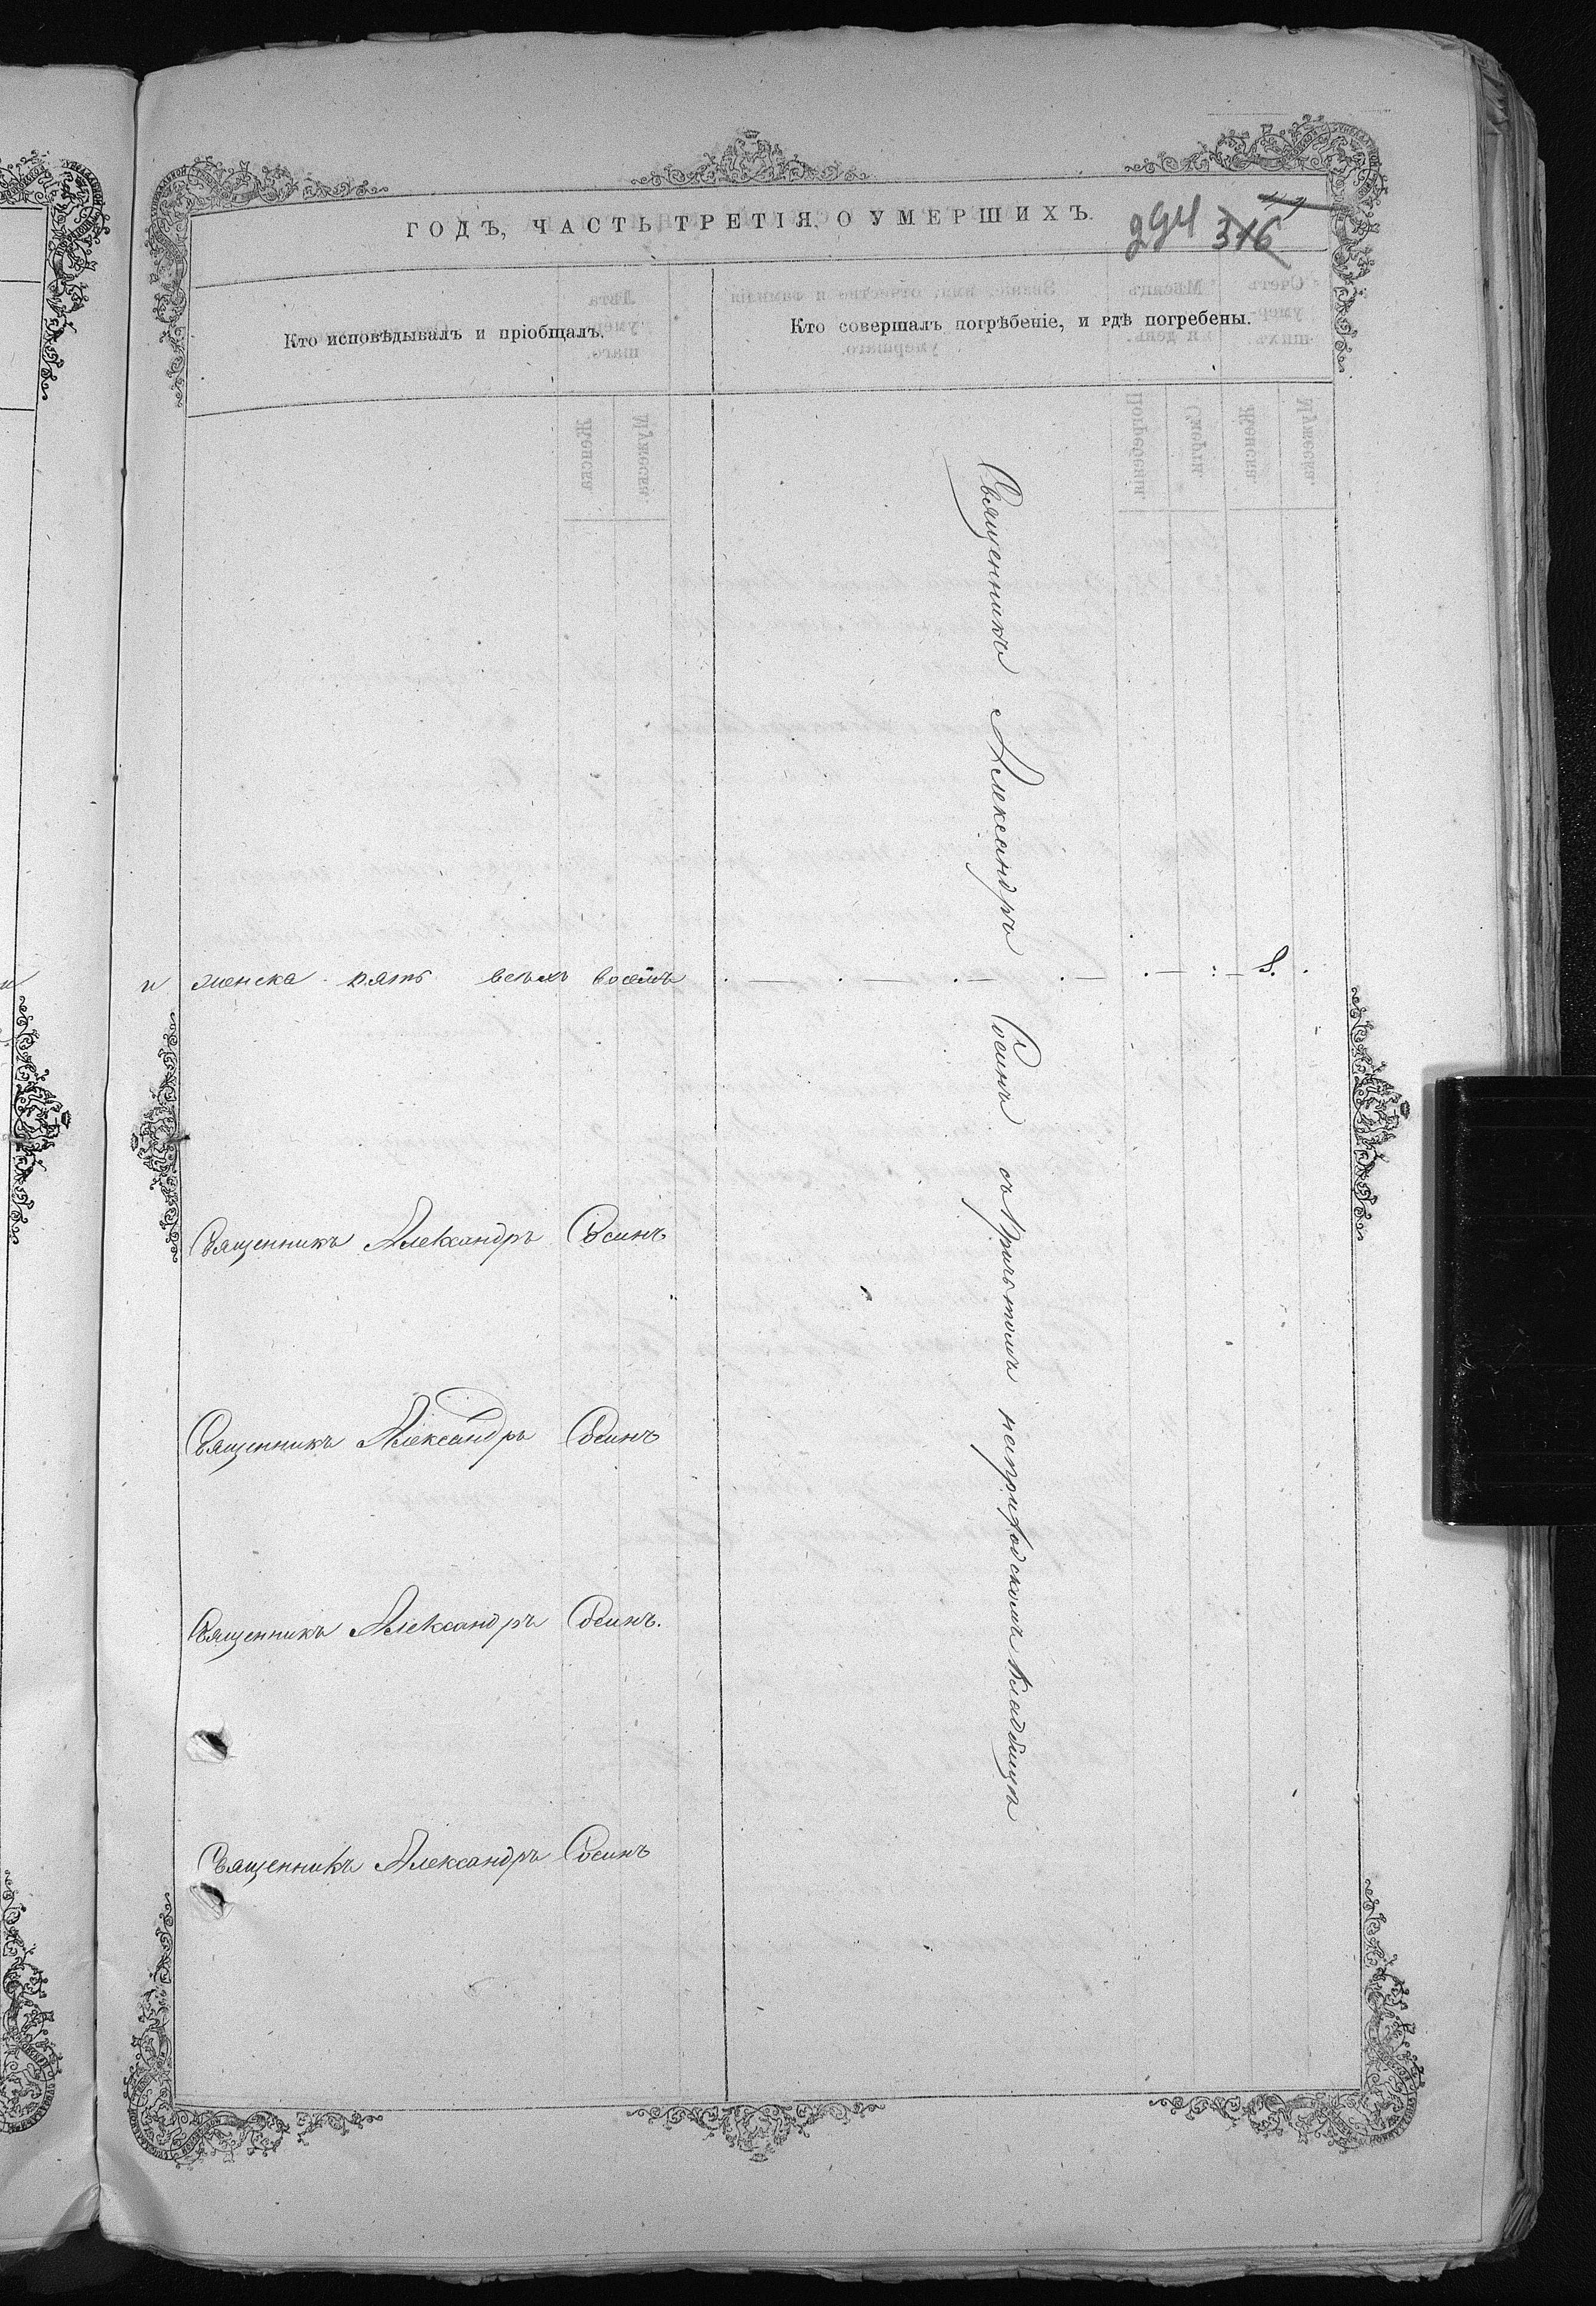 ГОДЪ, ЧАСТЬ ТРЕТІЯ, О УМЕРШИХЪ.
294 316
Кто исповѣдывалъ и пріобщалъ.
Кто совершалъ погрѣбеніе, и гдѣ погребены.
Священникъ Александръ Сосинъ съ Причтомъ на приходскомъ кладбищѣ
и женска пять всѣхъ восемь . — . — . — . — . — : — 8.
Священникъ Александръ Сосинъ
Священникъ Александръ Сосинъ
Священникъ Александръ Сосинъ.
Священникъ Александръ Сосинъ